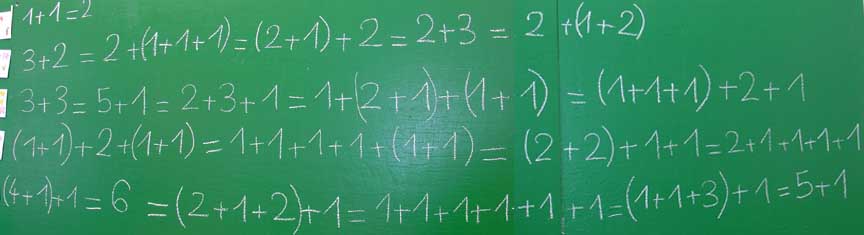 1+1=2
3+2=2+(1+1+1)=(2+1)+2=2+3=2+(1+2)
3+3=5+1=2+3+1=1+(2+1)+(1+1)=(1+1+1)+2+1
(1+1)+2+(1+1)=1+1+1+1+(1+1)=(2+2)+1+1=2+1+1+1+1
(4+1)+1=6=(2+1+2)+1=1+1+1+1+1+1=(1+1+3)+1=5+1